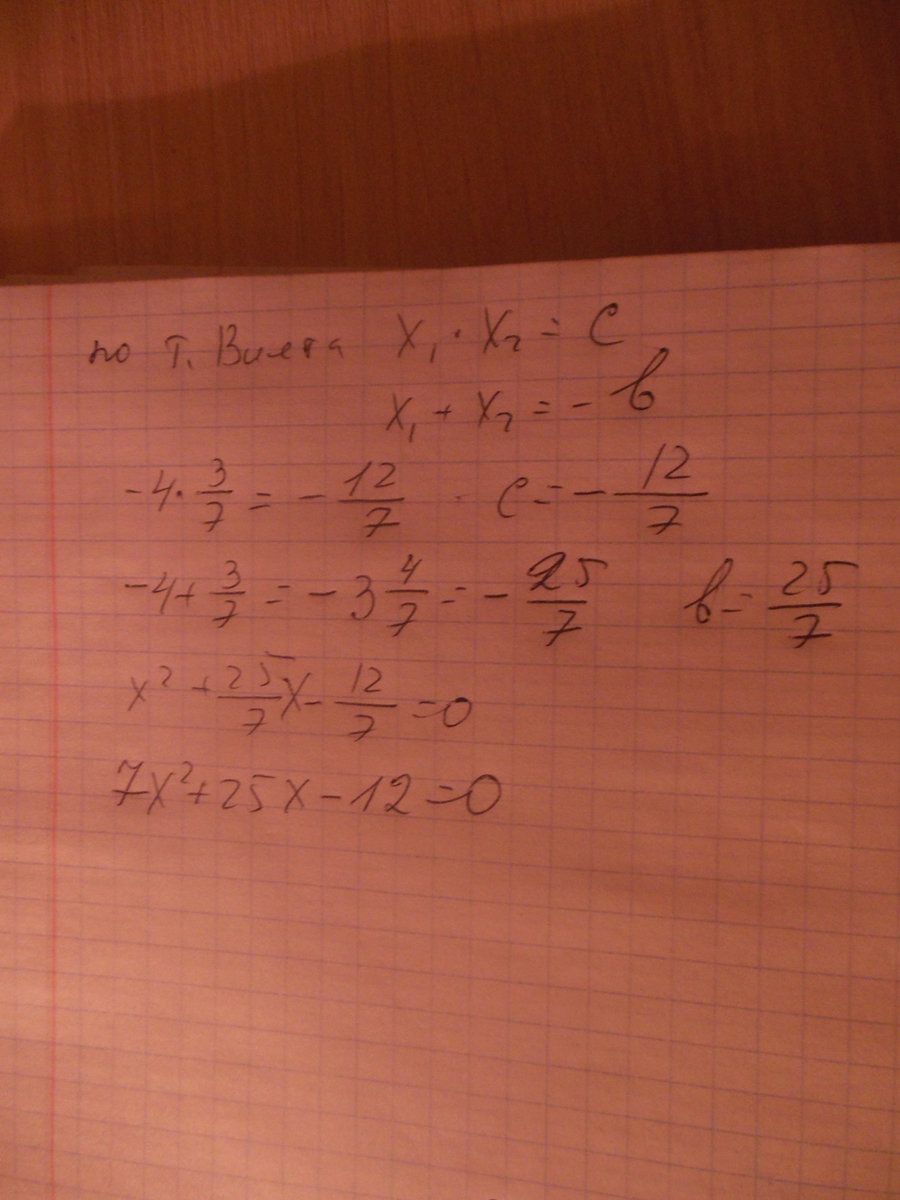 по т. Виета x₁ · x₂ = c
x₁ + x₂ = - b
-4 · 3/7 = - 12/7 c = - 12/7
-4 + 3/7 = - 3 4/7 = - 25/7 b = 25/7
x² + 25/7 x - 12/7 = 0
7x² + 25x - 12 = 0